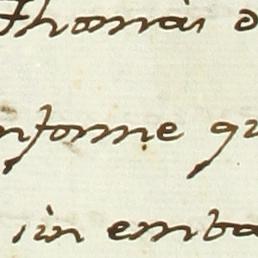 Thomas o
nforme qu
sin emba